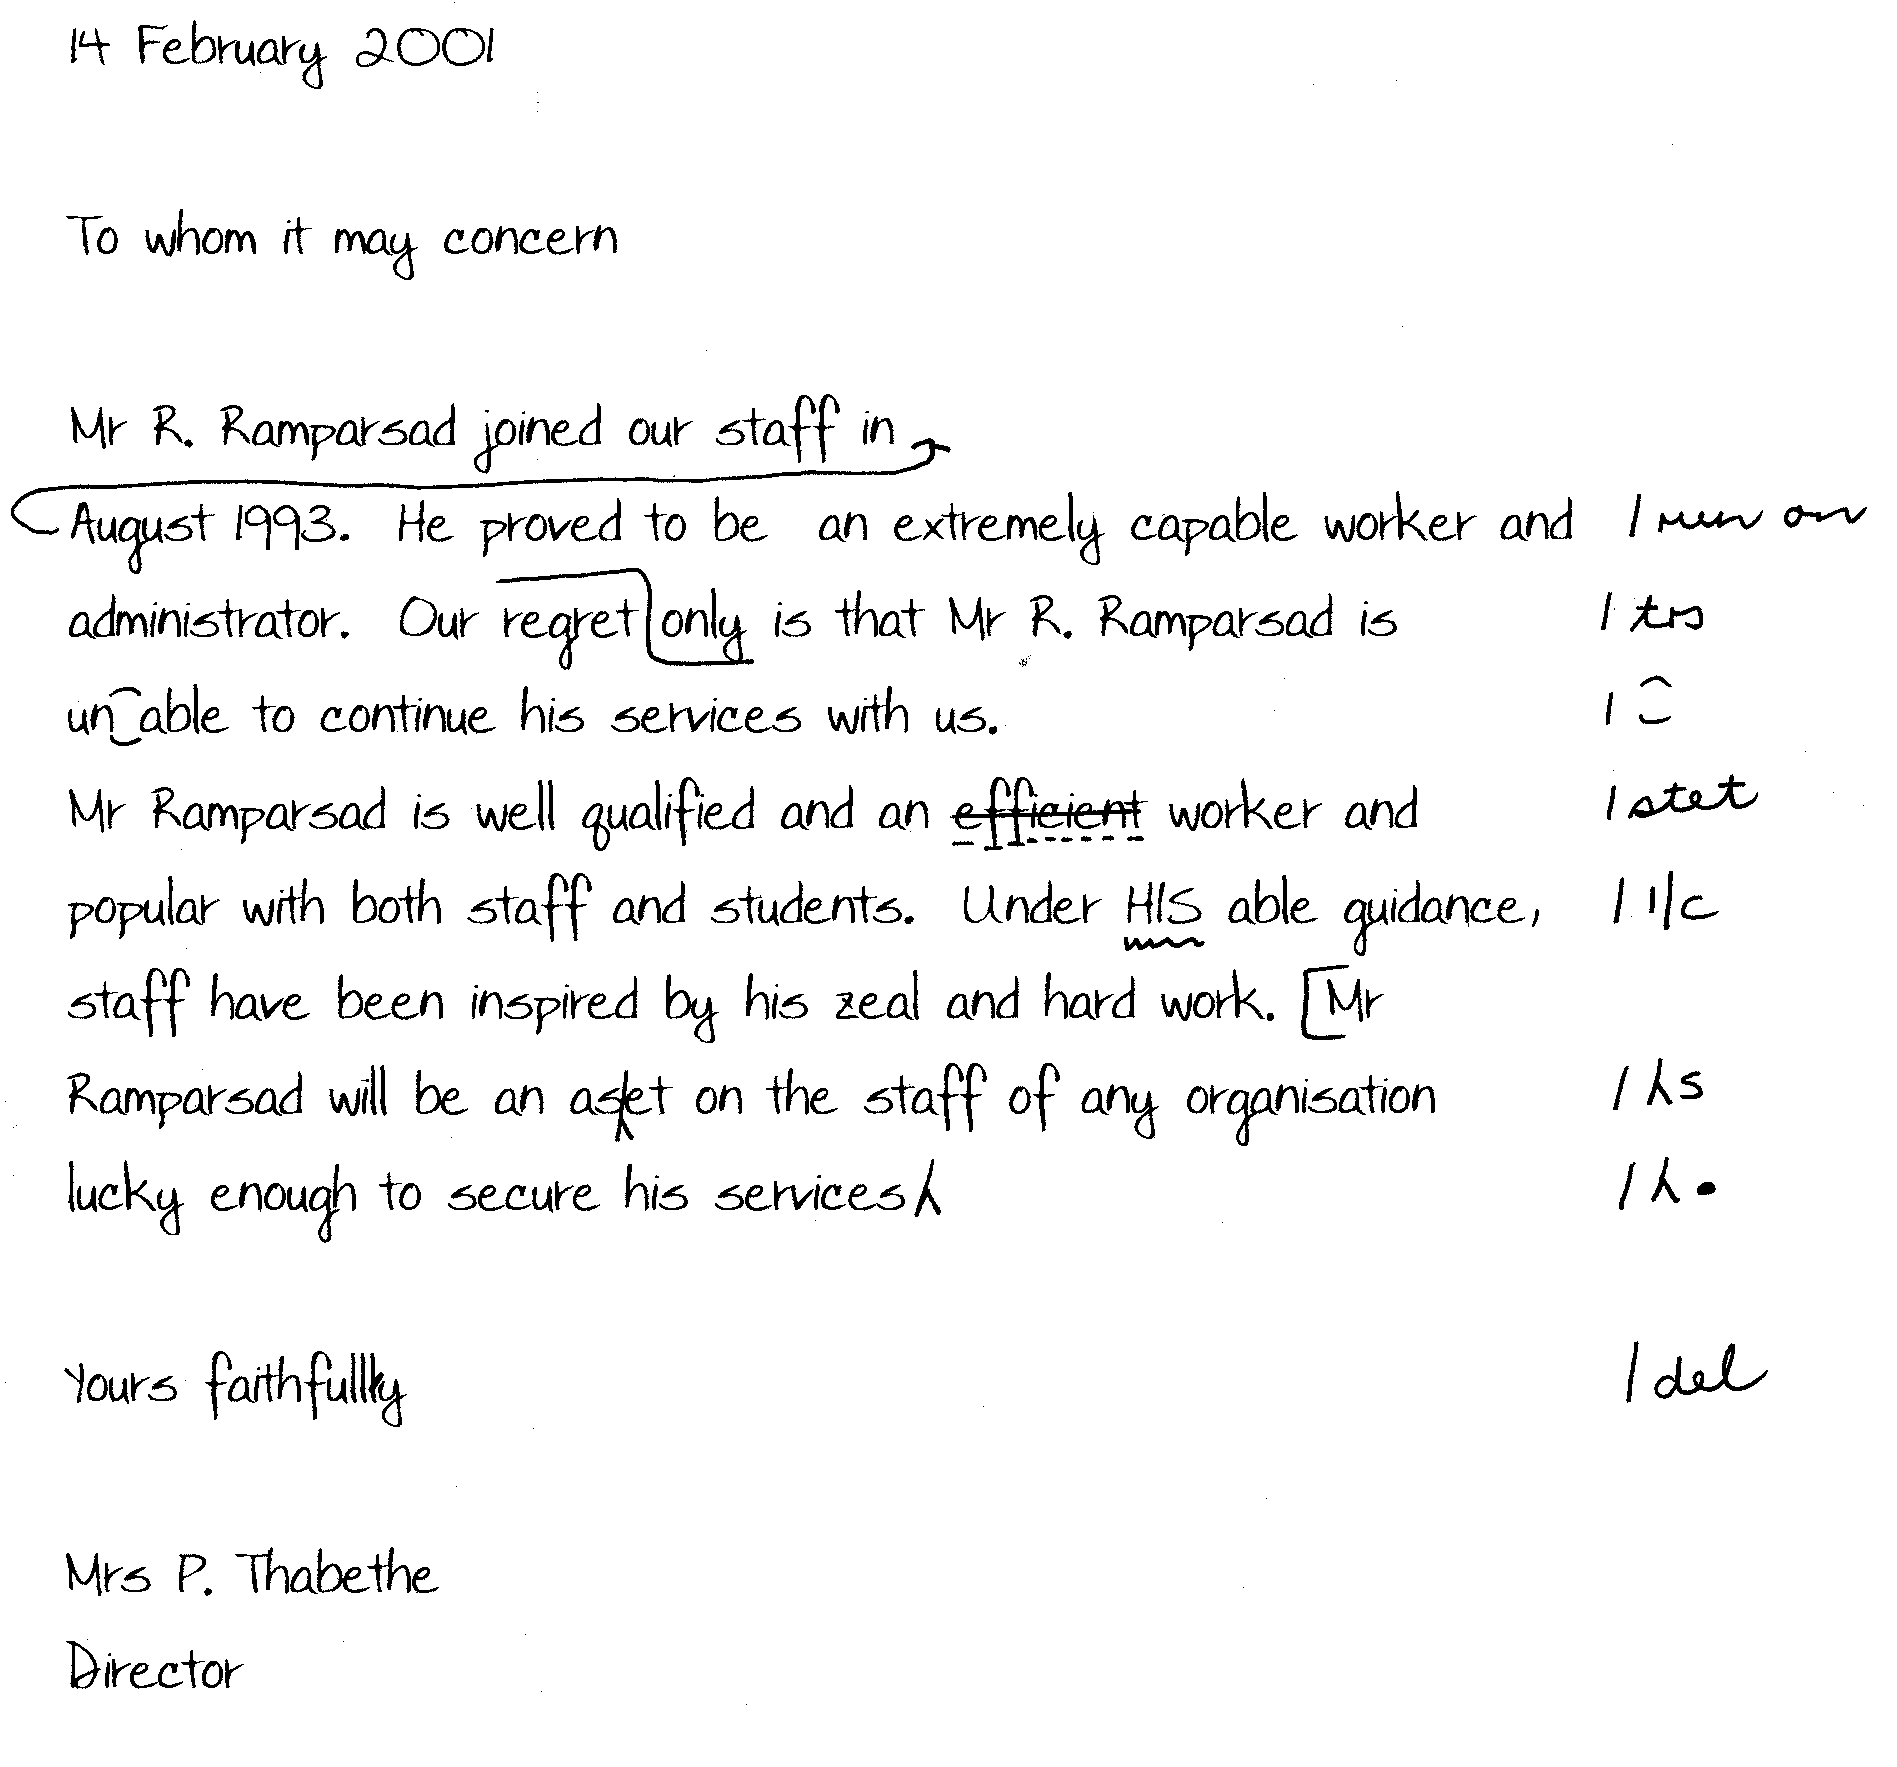 14 February 2001
To whom it may concern
Mr R. Ramparsad joined our staff in
August 1993. He proved to be an extremely capable worker and / run on
administrator. Our regret only is that Mr R. Ramparsad is / trs
un able to continue his services with us. /
Mr Ramparsad is well qualified and an efficient worker and / stet
popular with both staff and students. Under HIS able guidance, / l/c
staff have been inspired by his zeal and hard work. [Mr
Ramparsad will be an aset on the staff of any organisation / ⁁ s
lucky enough to secure his services⁁ / ⁁ .
Yours faithfullly / del
Mrs P. Thabethe
Director